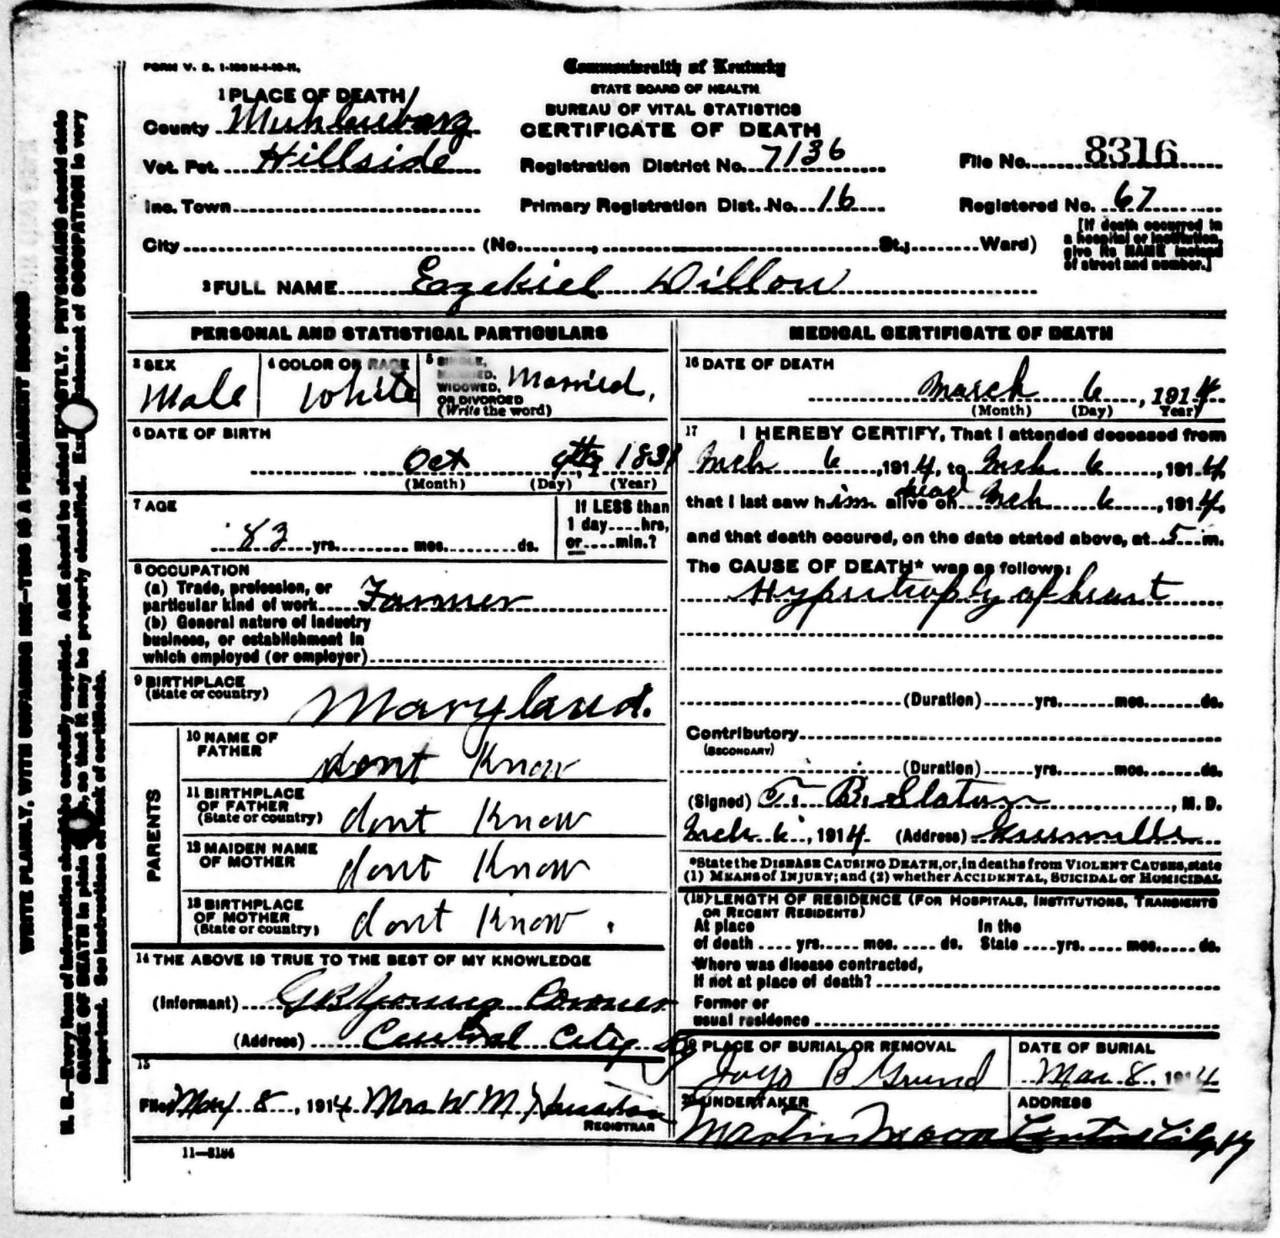 FORM V. S. 1-100M-4-10-11.
Commonwealth of Kentucky
STATE BOARD OF HEALTH
BUREAU OF VITAL STATISTICS
CERTIFICATE OF DEATH
1 PLACE OF DEATH
County Muhlenberg
Vot. Pct. Hillside
Registration District No. 7136
File No. 8316
Inc. Town
Primary Registration Dist. No. 16
Registered No. 67
City (No. , St.; Ward)
[If death occurred in
a hospital or institution,
give its NAME instead
of street and number.]
2 FULL NAME Ezekiel Dillow
PERSONAL AND STATISTICAL PARTICULARS
3 SEX
Male
4 COLOR OR RACE
White
5 SINGLE,
MARRIED,
WIDOWED,
OR DIVORCED
(Write the word)
Married.
6 DATE OF BIRTH
Oct 9th 1831
(Month) (Day) (Year)
7 AGE
83 yrs. mos. ds.
If LESS than
1 day....hrs,
or....min.?
8 OCCUPATION
(a) Trade, profession, or
particular kind of work Farmer
(b) General nature of industry
business, or establishment in
which employed (or employer)
9 BIRTHPLACE
(State or country) Maryland.
PARENTS
10 NAME OF
FATHER dont Know
11 BIRTHPLACE
OF FATHER
(State or country) dont Know
12 MAIDEN NAME
OF MOTHER dont Know
13 BIRTHPLACE
OF MOTHER
(State or country) dont Know.
14 THE ABOVE IS TRUE TO THE BEST OF MY KNOWLEDGE
(Informant) G B Young Coroner
(Address) Central City Ky
15
Filed May 8, 1914 Mrs W. M.
REGISTRAR
11—3184
MEDICAL CERTIFICATE OF DEATH
16 DATE OF DEATH
March 6, 1914
(Month) (Day) Year)
17 I HEREBY CERTIFY, That I attended deceased from
Mch 6, 1914, to Mch 6, 1914,
that I last saw him alive dead on Mch 6, 1914,
and that death occured, on the date stated above, at 5 m.
The CAUSE OF DEATH* was as follows:
Hypertrophy of heart
(Duration) yrs. mos. ds.
Contributory
(SECONDARY)
(Duration) yrs. mos. ds.
(Signed) T. B. Slaton, M. D.
Mch 6, 1914. (Address) Greenville
*State the DISEASE CAUSING DEATH, or, in deaths from VIOLENT CAUSES, state
(1) MEANS of INJURY; and (2) whether ACCIDENTAL, SUICIDAL or HOMICIDAL
(18) LENGTH OF RESIDENCE (FOR HOSPITALS, INSTITUTIONS, TRANSIENTS
OR RECENT RESIDENTS)
At place
of death .... yrs. .... mos. .... ds.
In the
State .... yrs. .... mos. .... ds.
Where was disease contracted,
If not at place of death?
Former or
usual residence
19 PLACE OF BURIAL OR REMOVAL
B Grund
DATE OF BURIAL
Mar 8, 1914
20 UNDERTAKER
Martin
ADDRESS
Central City Ky
WRITE PLAINLY, WITH UNFADING INK—THIS IS A PERMANENT RECORD
N. B.—Every item of information should be carefully supplied. AGE should be stated EXACTLY. PHYSICIANS should state
CAUSE OF DEATH in plain terms, so that it may be properly classified. Exact statement of OCCUPATION is very
important. See instructions on back of certificate.